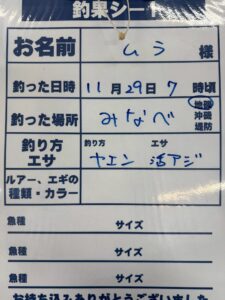 釣果シート
お名前 ムラ 様
釣った日時 11月29日 7 時頃
釣った場所 みなべ 地磯 沖磯 堤防
釣り方 エサ 釣り方 ヤエン エサ 活アジ
ルアー、エギの種類・カラー
魚種 サイズ
魚種 サイズ
魚種 サイズ
お持ち込みありがとうございました